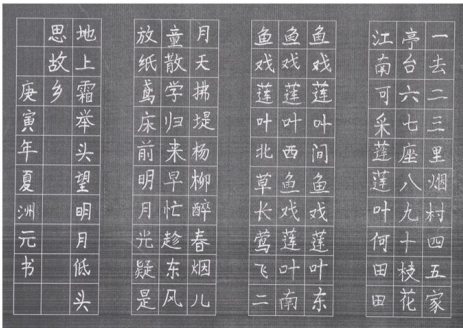 一去二三里烟村四五家
亭台六七座八九十枝花
江南可采莲莲叶何田田
鱼戏莲叶间鱼戏莲叶东
鱼戏莲叶西鱼戏莲叶南
鱼戏莲叶北草长莺飞二
月天拂堤杨柳醉春烟儿
童散学归来早忙趁东风
放纸鸢床前明月光疑是
地上霜举头望明月低头
思故乡
庚寅年夏洲元书